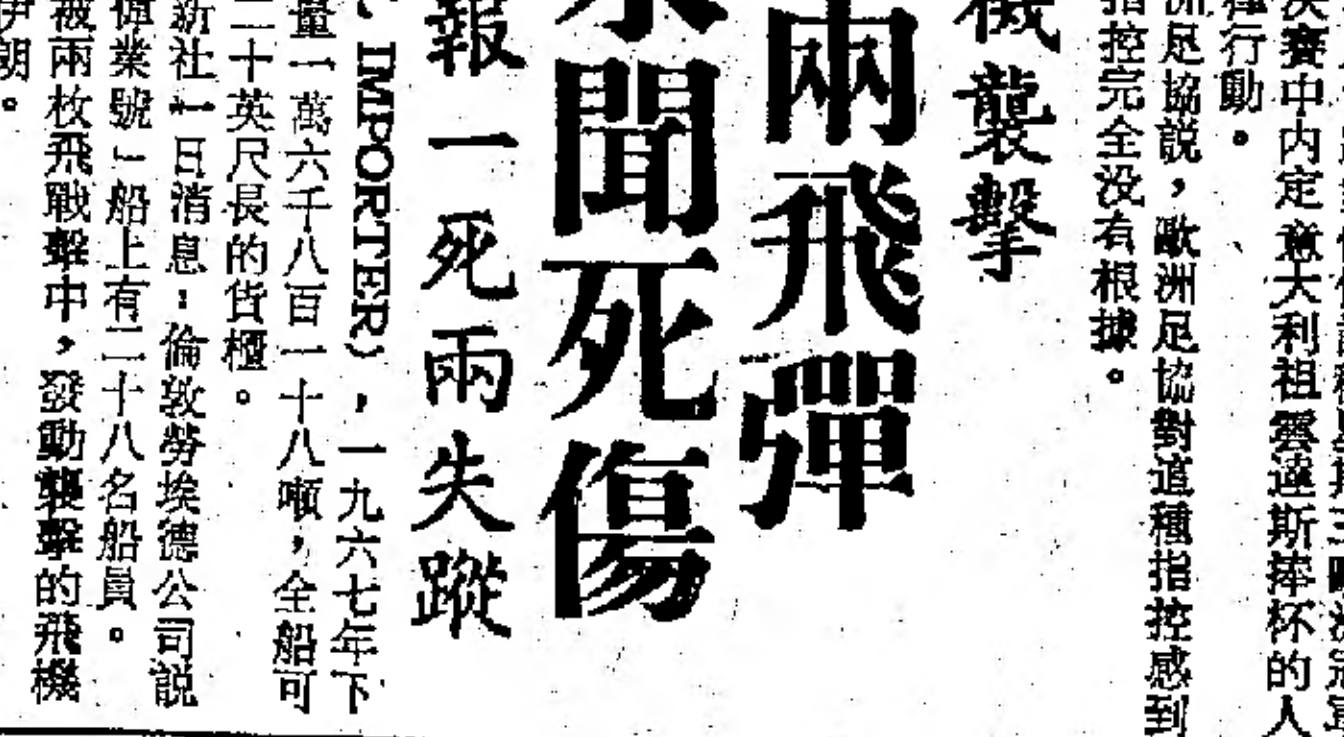 決賽中内定意大利祖雲達斯捧杯的人
行動。
足協説，歐洲足協對這種指控感到
指控完全没有根據。
機襲擊
兩飛彈
未聞死傷
報一死兩失蹤
IMPORTER），一九六七年下
量一萬六千八百一十八噸，全船可
二十英尺長的貨櫃。
新社一日消息：倫敦勞埃德公司説
偉業號」船上有二十八名船員。
被兩枚飛戰擊中，發動襲擊的飛機
伊朗。